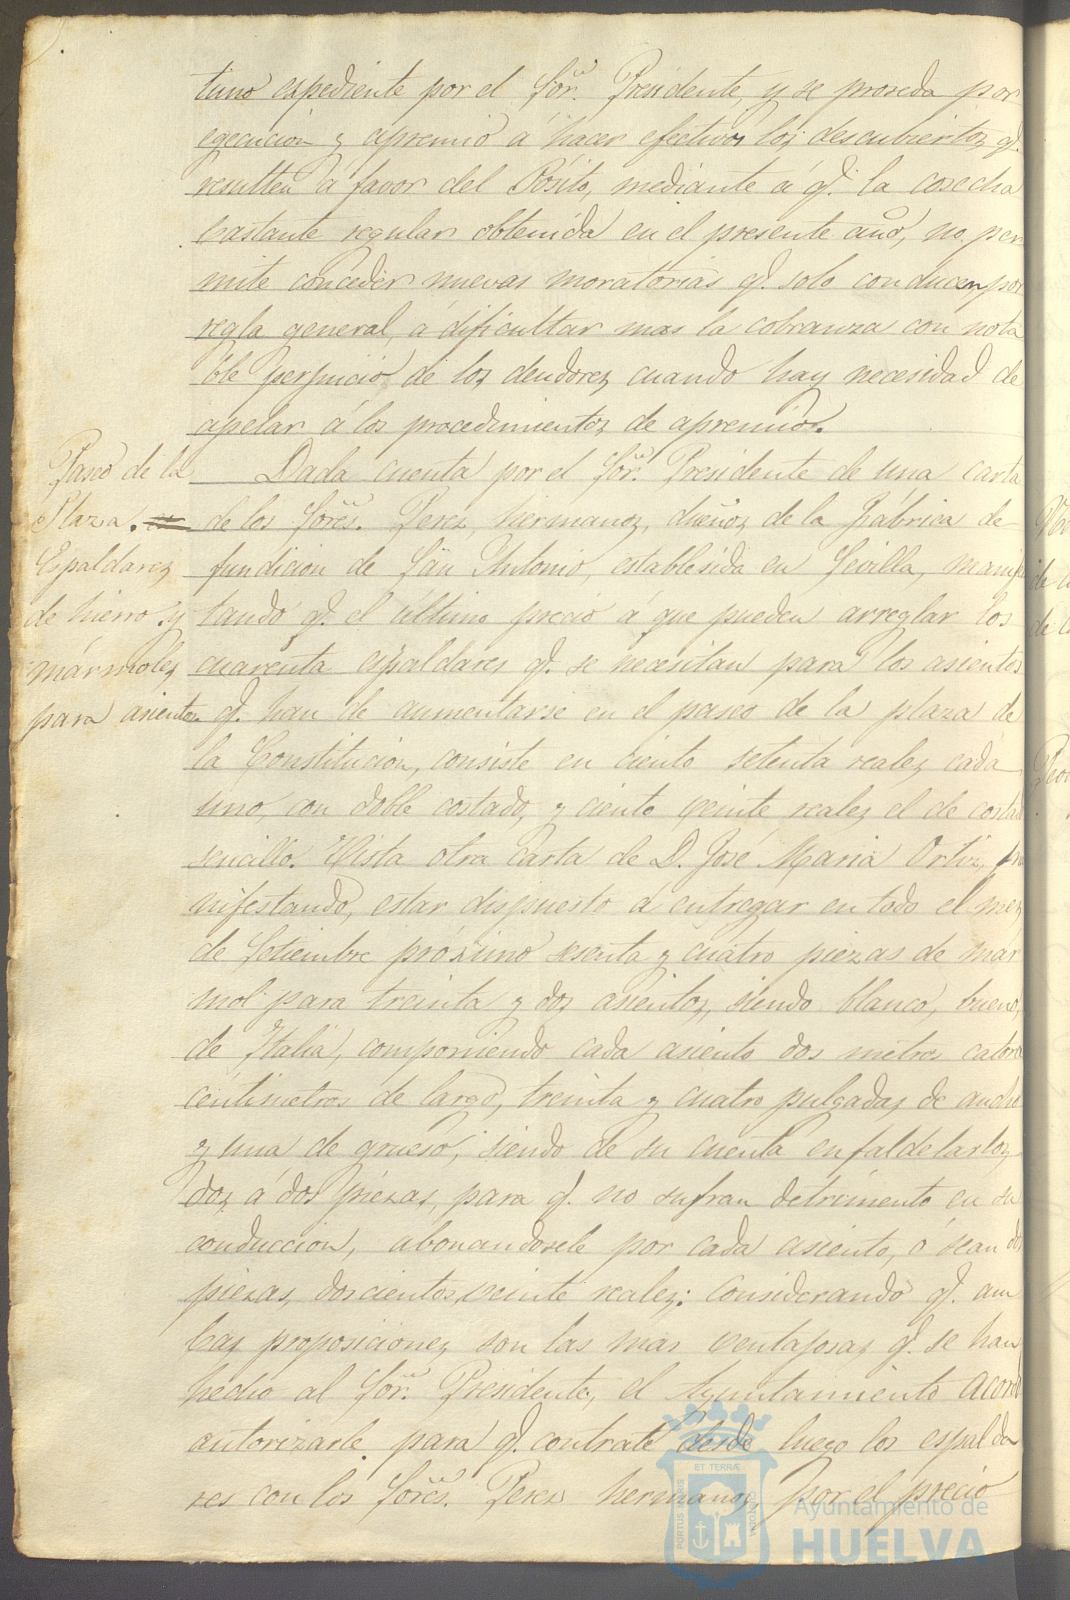 tuno espediente por el Sor. Presidente, y se proseda por
egecucion y apremio á hacer efectivos los descubiertos q.
resulten á favor del Pósito, mediante á q. la cosecha
bastante regular obtenida en el presente año, no per
mite conceder nuevas moratorias q. solo conducen por
regla general, á dificultar mas la cobranza con nota
ble perjuicio de los deudores, cuando hay necesidad de
apelar á los procedimientos de apremio.
Paseo de la
Plaza.
Espaldares
de hierro y
mármoles
para asientos
Dada cuenta por el Sor. Presidente de una carta
de los Sores. Perez hermanos, dueños de la Fábrica de
fundicion de San Antonio, establesida en Sevilla, manifes
tando q. el último precio á que pueden arreglar los
cuarenta espaldares q. se necesitan para los asientos
q. han de aumentarse en el paseo de la plaza de
la Constitucion, consiste en ciento setenta reales cada
uno, con doble costado, y ciento veinte reales el de costado
sencillo. Vista otra carta de D. José Maria Ortiz, ma
nifestando, estar dispuesto á entregar en todo el mes
de Setiembre próximo sesenta y cuatro piezas de mar
mol para treinta y dos asientos, siendo blanco, bueno,
de Italia, componiendo cada asiento dos metros catorce
céntimetros de largo, treinta y cuatro pulgadas de ancho
y una de grueso; siendo de su cuenta enfaldelarlos,
dos á dos piezas, para q. no sufran detrimento en su
conduccion, abonandosele por cada asiento, ó sean dos
piezas, doscientos veinte reales: Considerando q. am
bas proposiciones son las mas ventajosas q. se han
hecho al Sor. Presidente, el Ayuntamiento acordó
autorizarle para q. contrate desde luego los espalda
res con los Sores. Perez hermanos, por el precio
ET TERRÆ
PORTUS MARIS
CUSTODIA
Ayuntamiento de
HUELVA